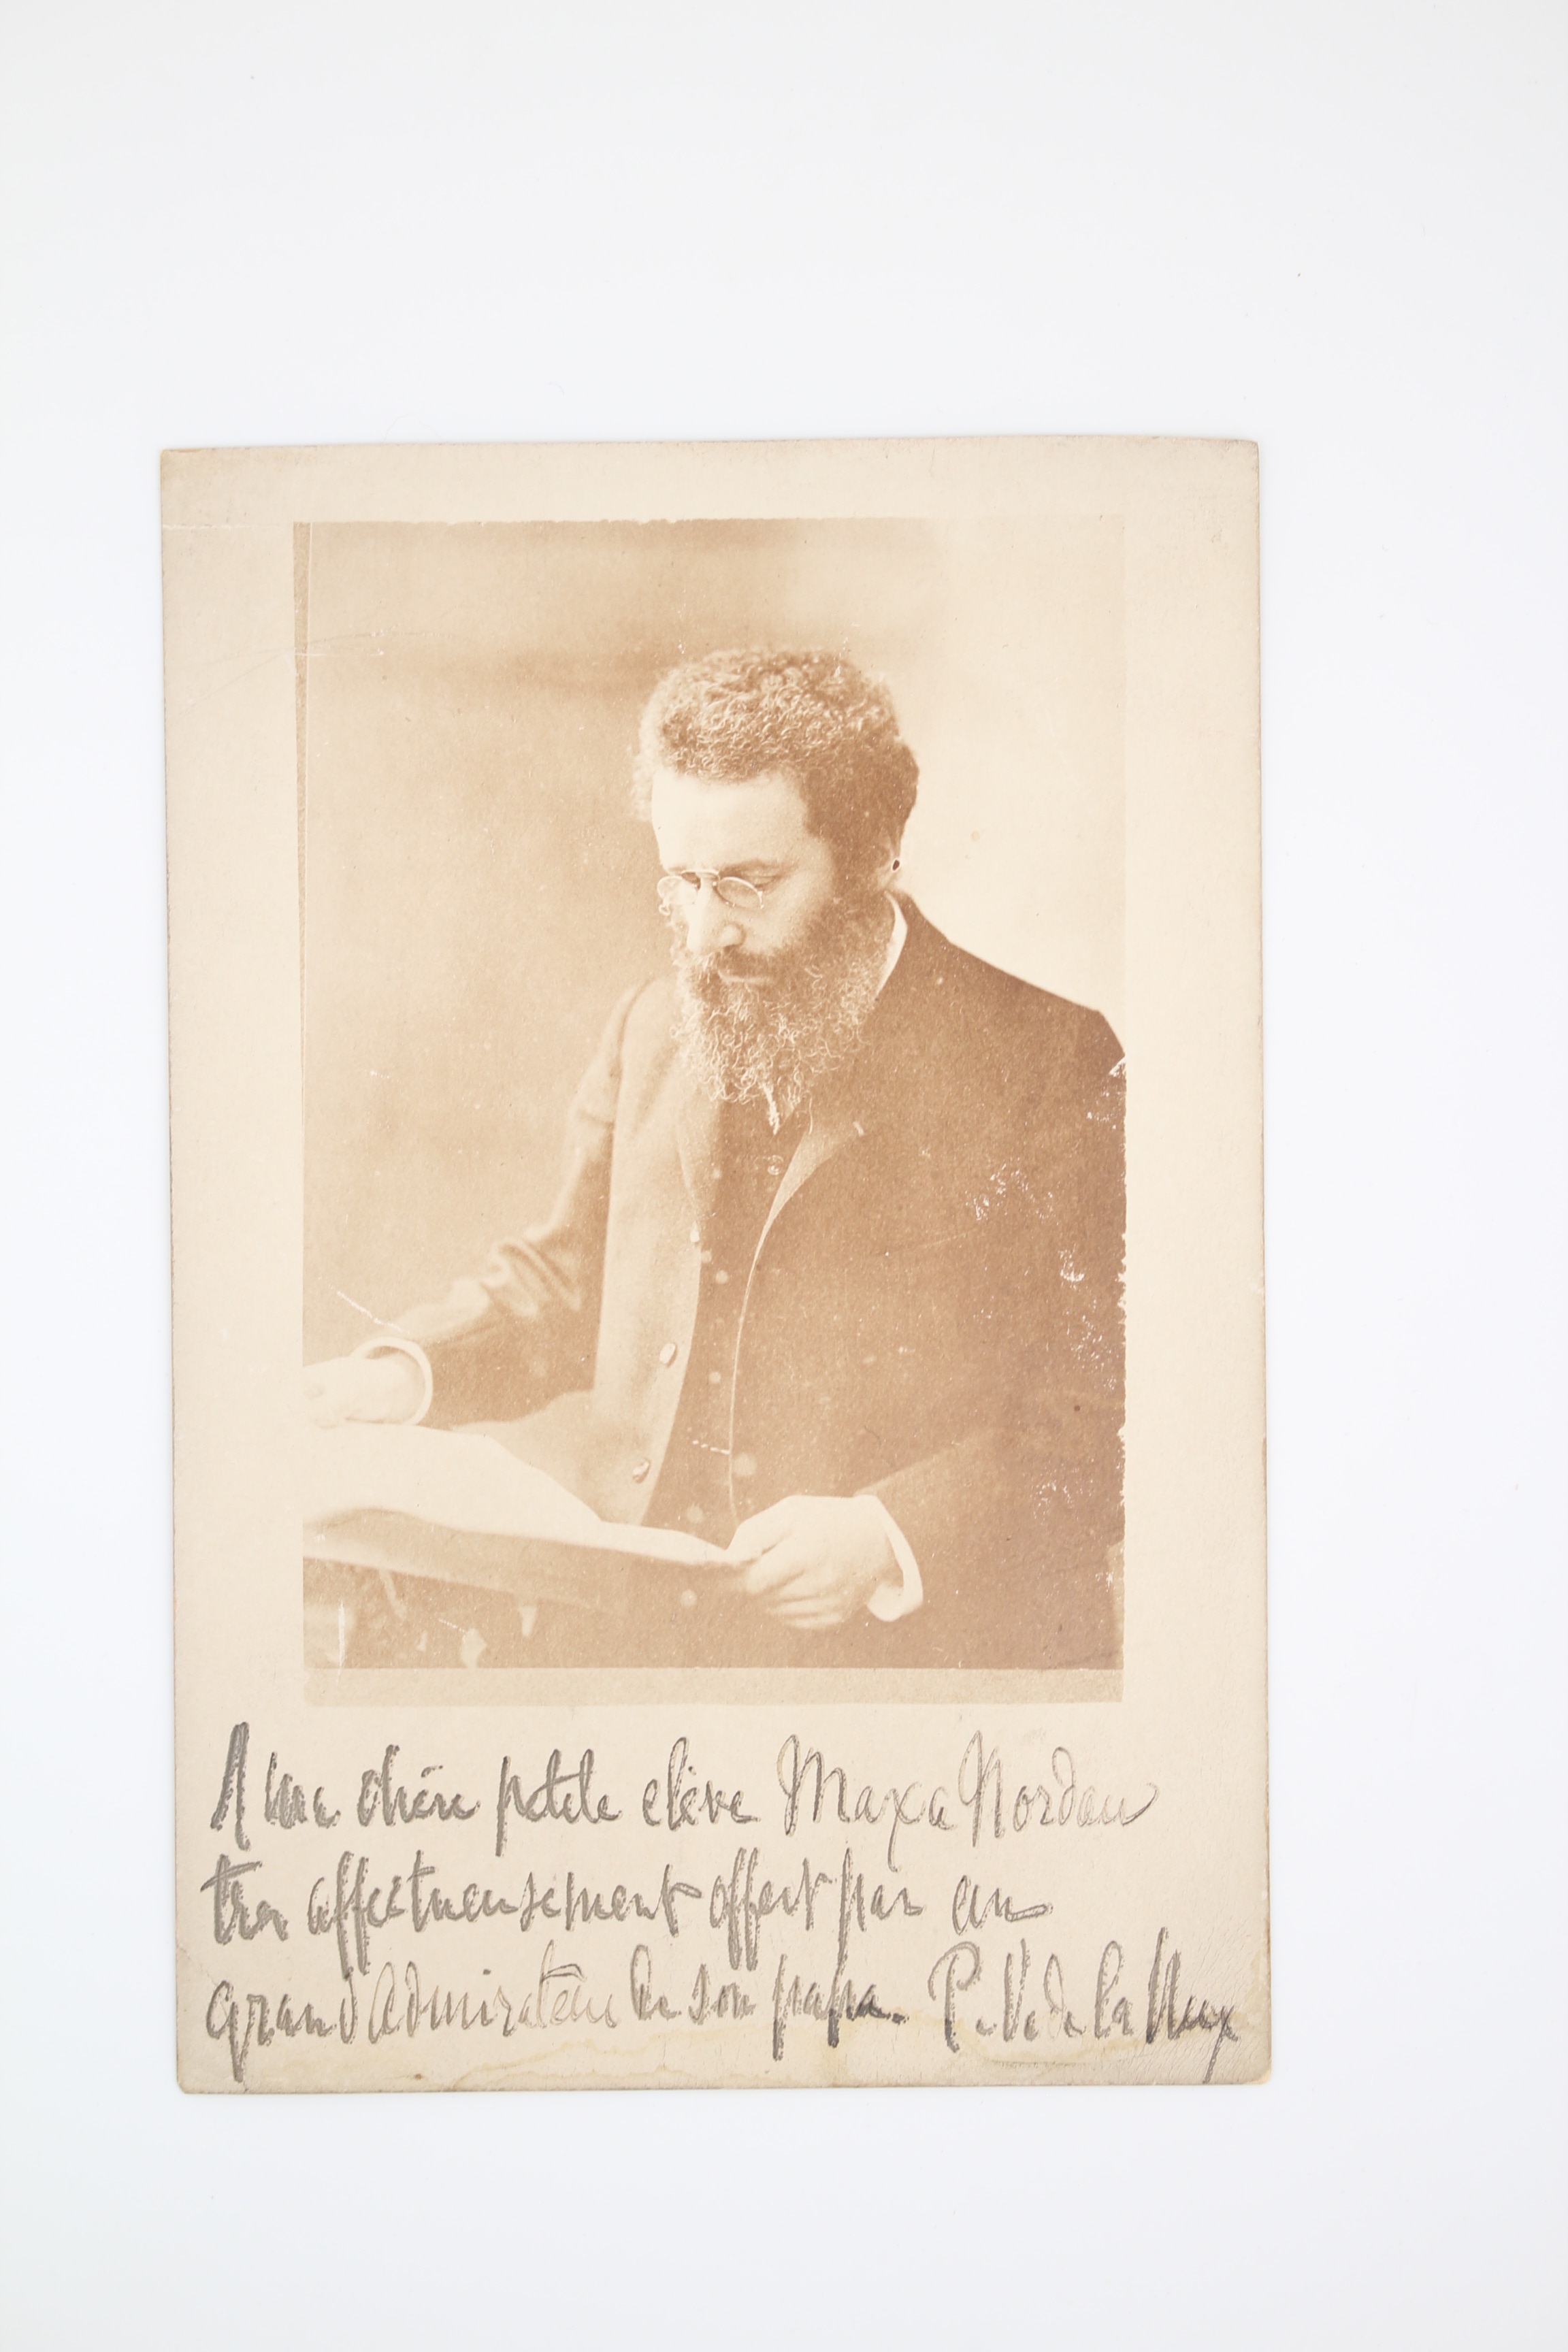 A ma chère petite elève Maxa Nordau
très affectueusement offert par un
grand admirateur de son papa. P. V. de la Nux